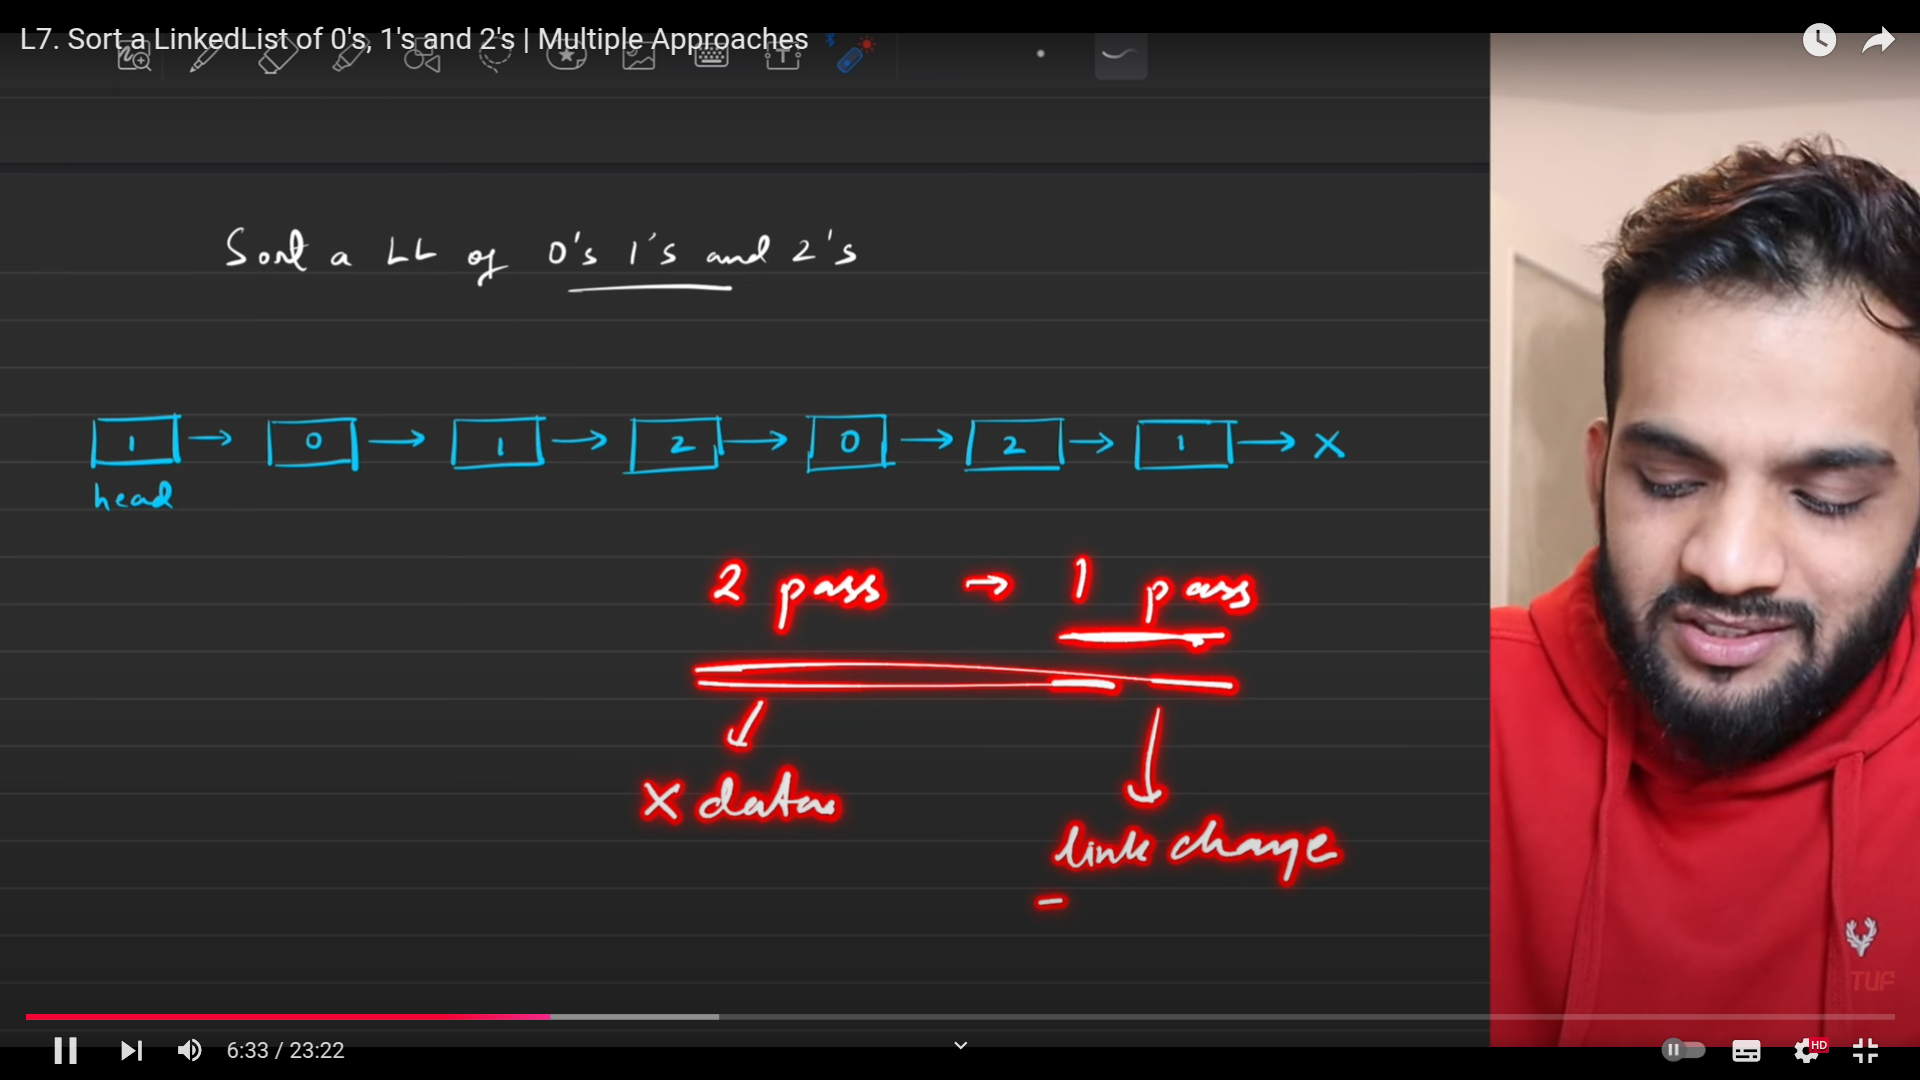 L7. Sort a LinkedList of 0's, 1's and 2's | Multiple Approaches
Sort a LL of 0's 1's and 2's
1 → 0 → 1 → 2 → 0 → 2 → 1 → X
head
2 pass → 1 pass
X data
link change
TUF
6:33 / 23:22
HD